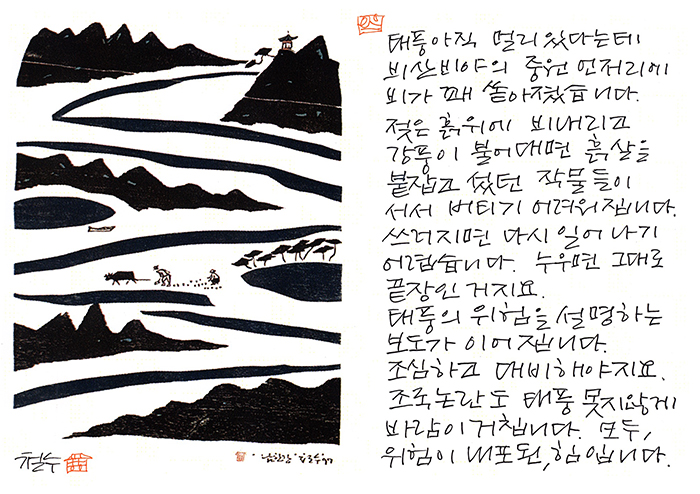 태풍아직 멀리 있다는데
비산비야의 중원 언저리에
비가 꽤 쏟아졌습니다.
젖은 흙위에 비내리고
강풍이 불어대면 흙살을
붙잡고 섰던 작물들이
서서 버티기 어려워집니다.
쓰러지면 다시 일어나기
어렵습니다. 누우면 그대로
끝장인 거지요.
태풍의 위험을 설명하는
보도가 이어집니다.
조심하고 대비해야지요.
조국논란도 태풍 못지않게
바람이 거칩니다. 모두,
위험이 내포된, 힘입니다.
철수